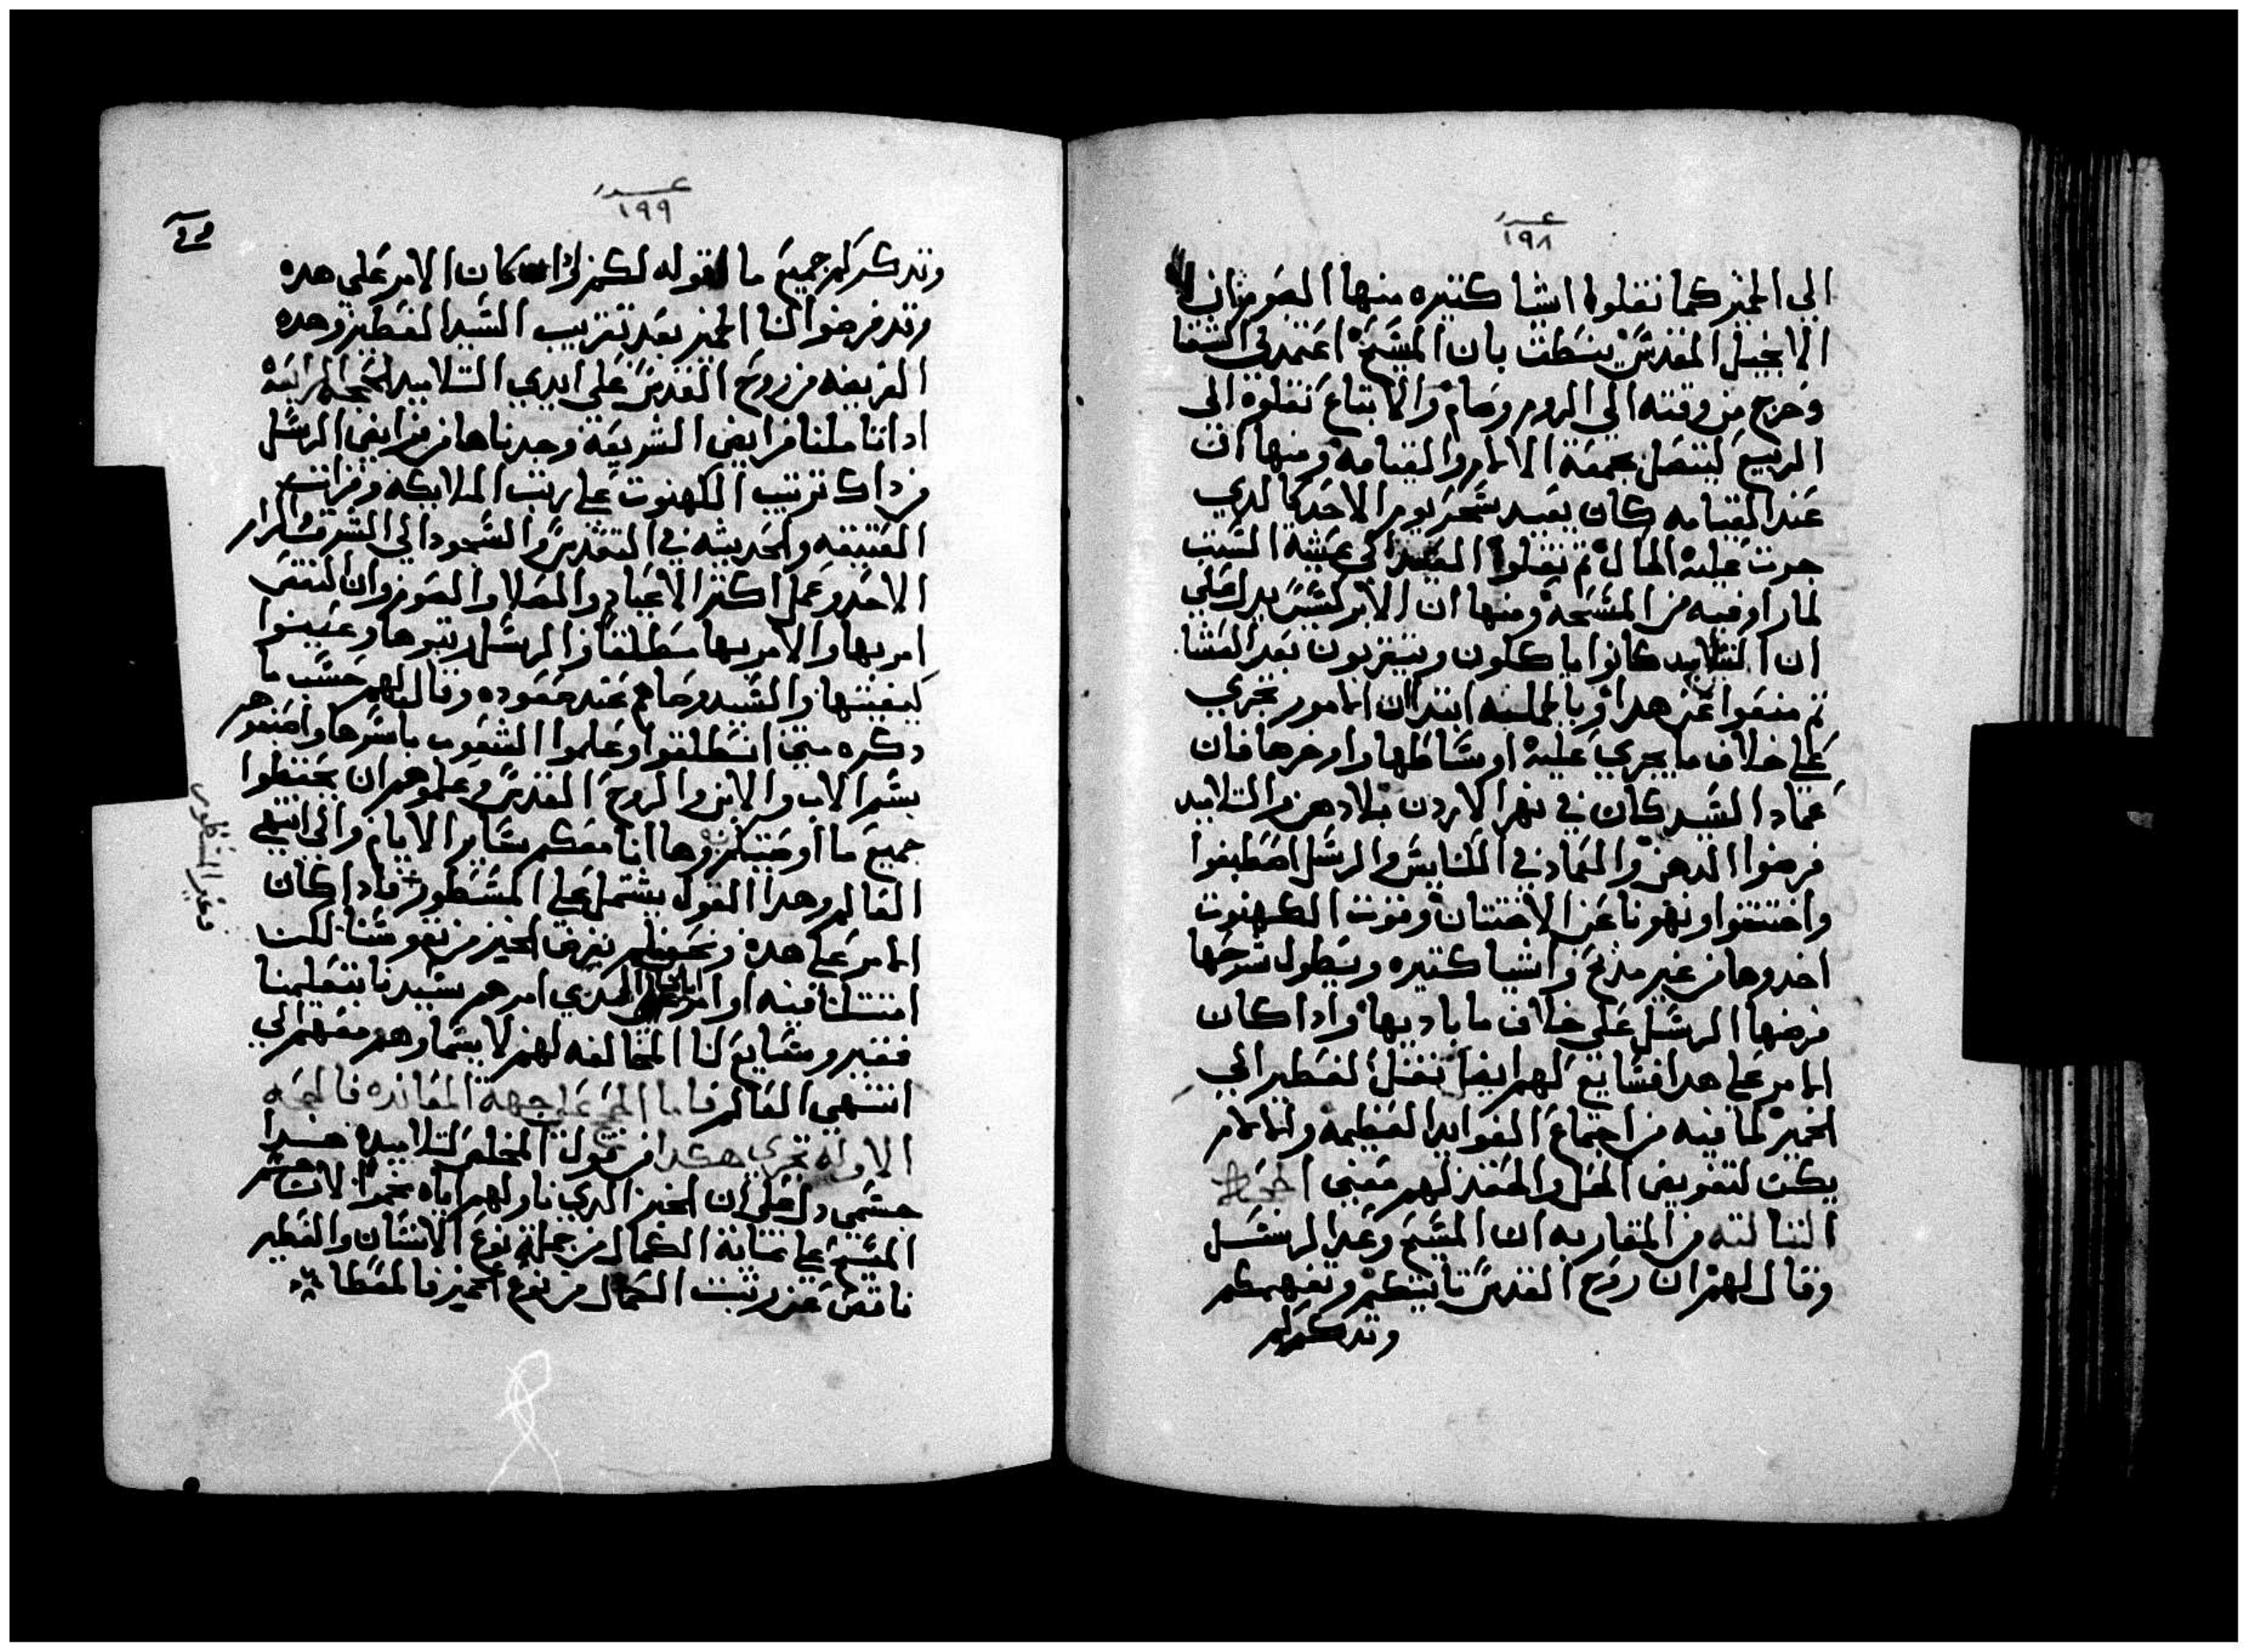 عدد
١٩٨
الى الخمير كما نقلوا اشيا كتيره منها الصوم فان
الانجيل المقدس ينطق بان المسيح اعتمد في الشتا
وخرج من وقته الي البر وصام والاتباع نقلوه الى
الربيع ليتصل بجمعة الالام والقيامه ومنها ان
عند القيامه كان بعيد سحر يوم الاحد كالدي
جرت عليه الحال تم نقلوا العيد الي عشية السبت
لما راوا فيه من المسحه ومنها ان الابركسيس يدل علي
ان التلاميد كانوا ياكلون ويتقربون بعد العشا
تم منعوا عن هدا وبالجمله ابتدا الامور تجري
علي خلاف ما يجري عليه اوساطها واخرها فان
عماد السيد كان في نهر الاردن بلا دهن والتلاميد
فرضوا الدهن والعماد في الكنايس والرسل اصطبغوا
واختتنوا ونهونا عن الاختتان وقوت الكهنوت
اخدوها من غير مدبح واشيا كتيره ويطول شرحها
فرضها الرسل علي خلاف ما باديها وادا كان
الامر علي هدا فسايغ لهم ايضا نقل الفطير الي
الخمير لما فيه من اجتماع الفوايد العظيمه ولما لم
يكن لتفويض الحل والعقد لهم معنى الحجه
التالته من المقاربه ان المسيح وعد الرسل
وقال لهم ان روح القدس تاتيكم وتفهمكم
وتدكركم
عدد
١٩٩
وتدكركم جميع ما اقوله لكم وادا كان الامر علي هده
وقد فرضوا لنا الخمير بعد تقريب السيد الفطير وحده
الفريضه من روح القدس علي ايدي التلاميد الحجه الرابعه
ادا تاملنا فرايض الشريعه وجدناها من فرايض الرسل
من داك ترتيب الكهنوت علي رتب الملايكه وقرات
العتيقه والحديثه في التقديس والسجود الي الشرق واكرام
الاحد وعمل اكتر الاعياد والصلاه والصوم وان التقى
امر بها والامر بها مطلقا فالرسل رتبوها وعينوا
كيفيتها والسيد وصاهم عند صعوده وقال لهم حسب ما
دكره متى انطلقوا وعلموا الشعوب باسرها واصبغوهم
بسم الاب والابن والروح القدس وعلموهم ان يحتفظوا
جميع ما اوصيتكم وها انا معكم ساير الايام والى انتهي
العالم وهدا القول يشتمل علي المسطور فادا كان
الامر علي هده ونحن لم نفرق الخمير من نفوسنا لكن
امتتلنا فيه اوامر الدي امرهم سيدنا بتعليمنا
فغير سايغ لنا المخالفه لهم لا سيما وهو معهم الي
انتهي العالم فاما الحجج علي جهة المعانده فالحجه
الاوله تجري هكدا من قول المخلص لتلاميده هدا
جسمي دل علي ان الخبز الدي ناولهم اياه مخمر لان جسم
المسيح علي غاية الكمال من جملة نوع الانسان والفطير
ناقص عن رتبت الكمال من نوع الخمير فالمعطا
وغير المنطوي